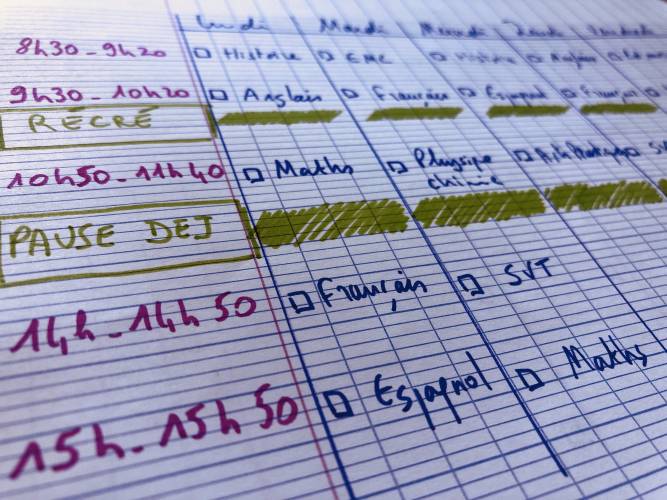 Lundi Mardi
8h30-9h20 Histoire EMC Histoire Anglais
9h30-10h20 Anglais Français Espagnol Français
RÉCRÉ
10h50-11h40 Maths Physique
chimie
PAUSE DEJ
14h-14h50 Français SVT
15h-15h50 Espagnol Maths